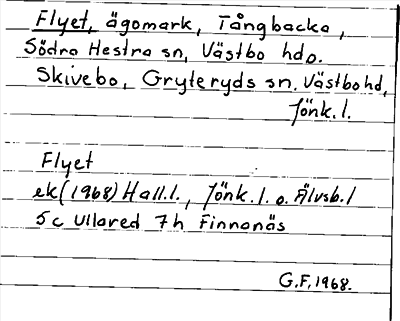 Flyet, ägomark, Tångbacka,
Södra Hestra sn, Västbo hdo.
Skivebo, Gryteryds sn, Västbo hd,
Jönk.l.
Flyet
ek(1968) Hall.l., Jönk.l. o. Älvsb.l
5c Ullared 7h Finnanäs
G.F. 1968.